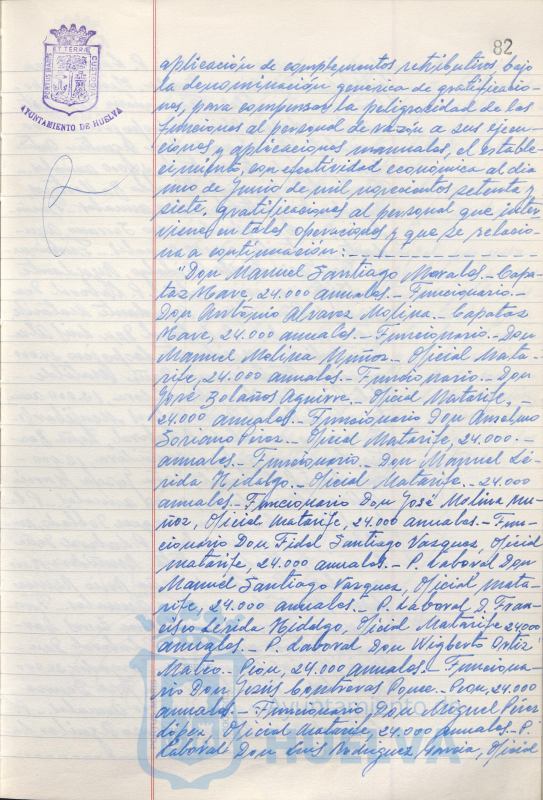 82
PORTUS MARIS ET TERRAE CUSTODIA
AYUNTAMIENTO DE HUELVA
aplicación de complementos retributivos, bajo
la denominación genérica de gratificacio-
nes, para compensar la peligrosidad de las
funciones al personal de razón a sus ejecu-
ciones y aplicaciones manuales, el estable-
cimiento, con efectividad económica al día
uno de Junio de mil novecientos setenta y
siete, gratificaciones al personal que inter-
viene en tales operaciones y que se relacio-
na a continuación:
"Don Manuel Santiago Morales.- Capa-
taz Nave, 24.000 anuales.- Funcionario.-
Don Antonio Alvarez Molina.- Capataz
Nave, 24.000 anuales.- Funcionario.- Don
Manuel Molina Muñoz.- Oficial Mata-
rife, 24.000 anuales.- Funcionario.- Don
José Bolaños Aguirre.- Oficial Matarife,-
24.000 anuales.- Funcionario Don Anselmo
Soriano Pérez.- Oficial Matarife, 24.000.-
anuales.- Funcionario.- Don Manuel Lé-
rida Hidalgo.- Oficial Matarife.- 24.000
anuales.- Funcionario Don José Molina Mu-
ñoz, Oficial Matarife, 24.000 anuales.- Fun-
cionario Don Fidel Santiago Vazquez, Oficial
matarife, 24.000 anuales.- P. Laboral Don
Manuel Santiago Vazquez, Oficial mata-
rife, 24.000 anuales.- P. Laboral D. Fran-
cisco Lérida Hidalgo, Oficial Matarife 24000
anuales.- P. Laboral Don Wigberto Ortiz
Mateo.- Peón, 24.000 anuales.- Funciona-
rio Don Jesús Contreras Ponce.- Peon, 24.000
anuales.- Funcionario, Don Miguel Pérez
López, Oficial Matarife, 24.000 anuales.- P.
Laboral Don Luis Rodriguez García, Oficial
Ayuntamiento de
HUELVA